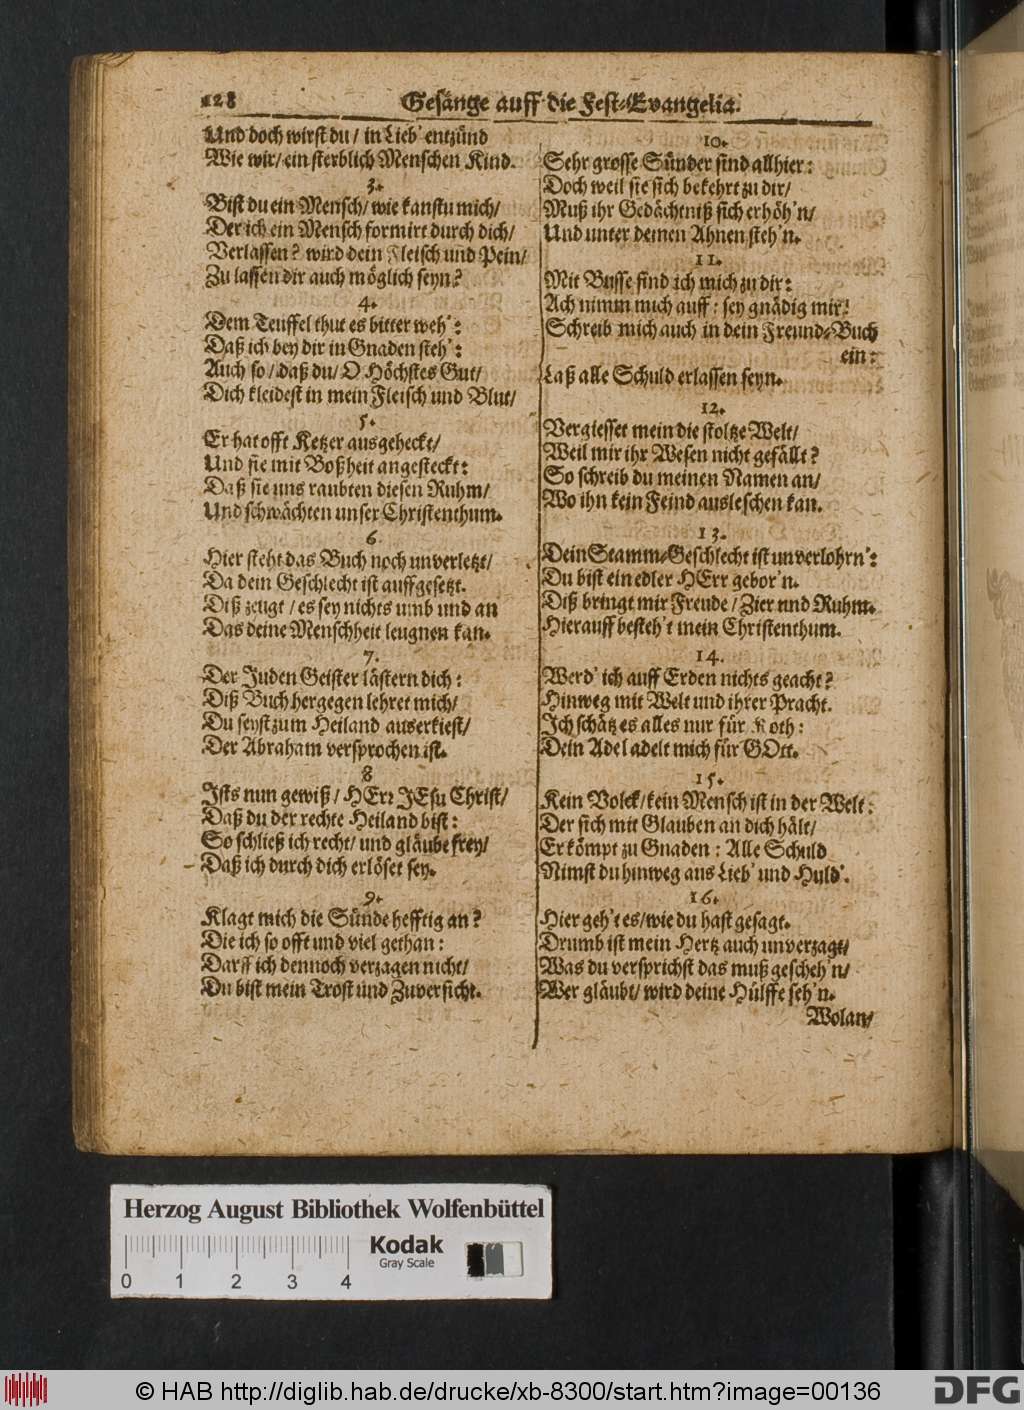 128
Gesänge auff die Fest-Evangelia.
Und doch wirst du/ in Lieb' entzünd
Wie wir/ ein sterblich Menschen Kind.
3.
Bist du ein Mensch/ wie kanstu mich/
Der ich ein Mensch formirt durch dich/
Verlassen? wird dein Fleisch und Pein/
Zu lassen dir auch möglich seyn?
4.
Dem Teuffel thut es bitter weh':
Daß ich bey dir in Gnaden steh':
Auch so/ daß du/ O Höchstes Gut/
Dich kleidest in mein Fleisch und Blut/
5.
Er hat offt Ketzer ausgeheckt/
Und sie mit Boßheit angesteckt:
Daß sie uns raubten diesen Ruhm/
Und schwächten unser Christenthum.
6
Hier steht das Buch noch unverletzt/
Da dein Geschlecht ist auffgesetzt.
Diß zeugt/ es sey nichts umb und an
Das deine Menschheit leugnen kan.
7.
Der Juden Geister lästern dich:
Diß Buch hergegen lehret mich/
Du seyst zum Heiland auserkiest/
Der Abraham versprochen ist.
8
Ists nun gewiß/ HErr JEsu Christ/
Daß du der rechte Heiland bist:
So schließ ich recht/ und gläube frey/
Daß ich durch dich erlöset sey.
9.
Klagt mich die Sünde hefftig an?
Die ich so offt und viel gethan:
Darff ich dennoch verzagen nicht/
Du bist mein Trost und Zuversicht.
10.
Sehr grosse Sünder sind allhier:
Doch weil sie sich bekehrt zu dir/
Muß ihr Gedächtniß sich erhöh'n/
Und unter deinen Ahnen steh'n.
11.
Mit Busse find ich mich zu dir:
Ach nimm mich auff: sey gnädig mir!
Schreib mich auch in dein Freund-Buch
ein:
Laß alle Schuld erlassen seyn.
12.
Vergiesset mein die stoltze Welt/
Weil mir ihr Wesen nicht gefällt?
So schreib du meinen Namen an/
Wo ihn kein Feind ausleschen kan.
13.
Dein Stamm-Geschlecht ist unverlohrn':
Du bist ein edler HErr gebor'n.
Diß bringt mir Freude/ Zier und Ruhm.
Hierauff besteh't mein Christenthum.
14.
Werd' ich auff Erden nichts geacht?
Hinweg mit Welt und ihrer Pracht.
Ich schätz es alles nur für Koth:
Dein Adel adelt mich für GOtt.
15.
Kein Volck/ kein Mensch ist in der Welt:
Der sich mit Glauben an dich hält/
Er kömpt zu Gnaden: Alle Schuld
Nimst du hinweg aus Lieb' und Huld'.
16.
Hier geh't es/ wie du hast gesagt.
Drumb ist mein Hertz auch unverzagt/
Was du versprichst das muß gescheh'n/
Wer gläubt/ wird deine Hülffe seh'n.
Wolan/
Herzog August Bibliothek Wolfenbüttel
Kodak
Gray Scale
0 1 2 3 4
© HAB http://diglib.hab.de/drucke/xb-8300/start.htm?image=00136
DFG